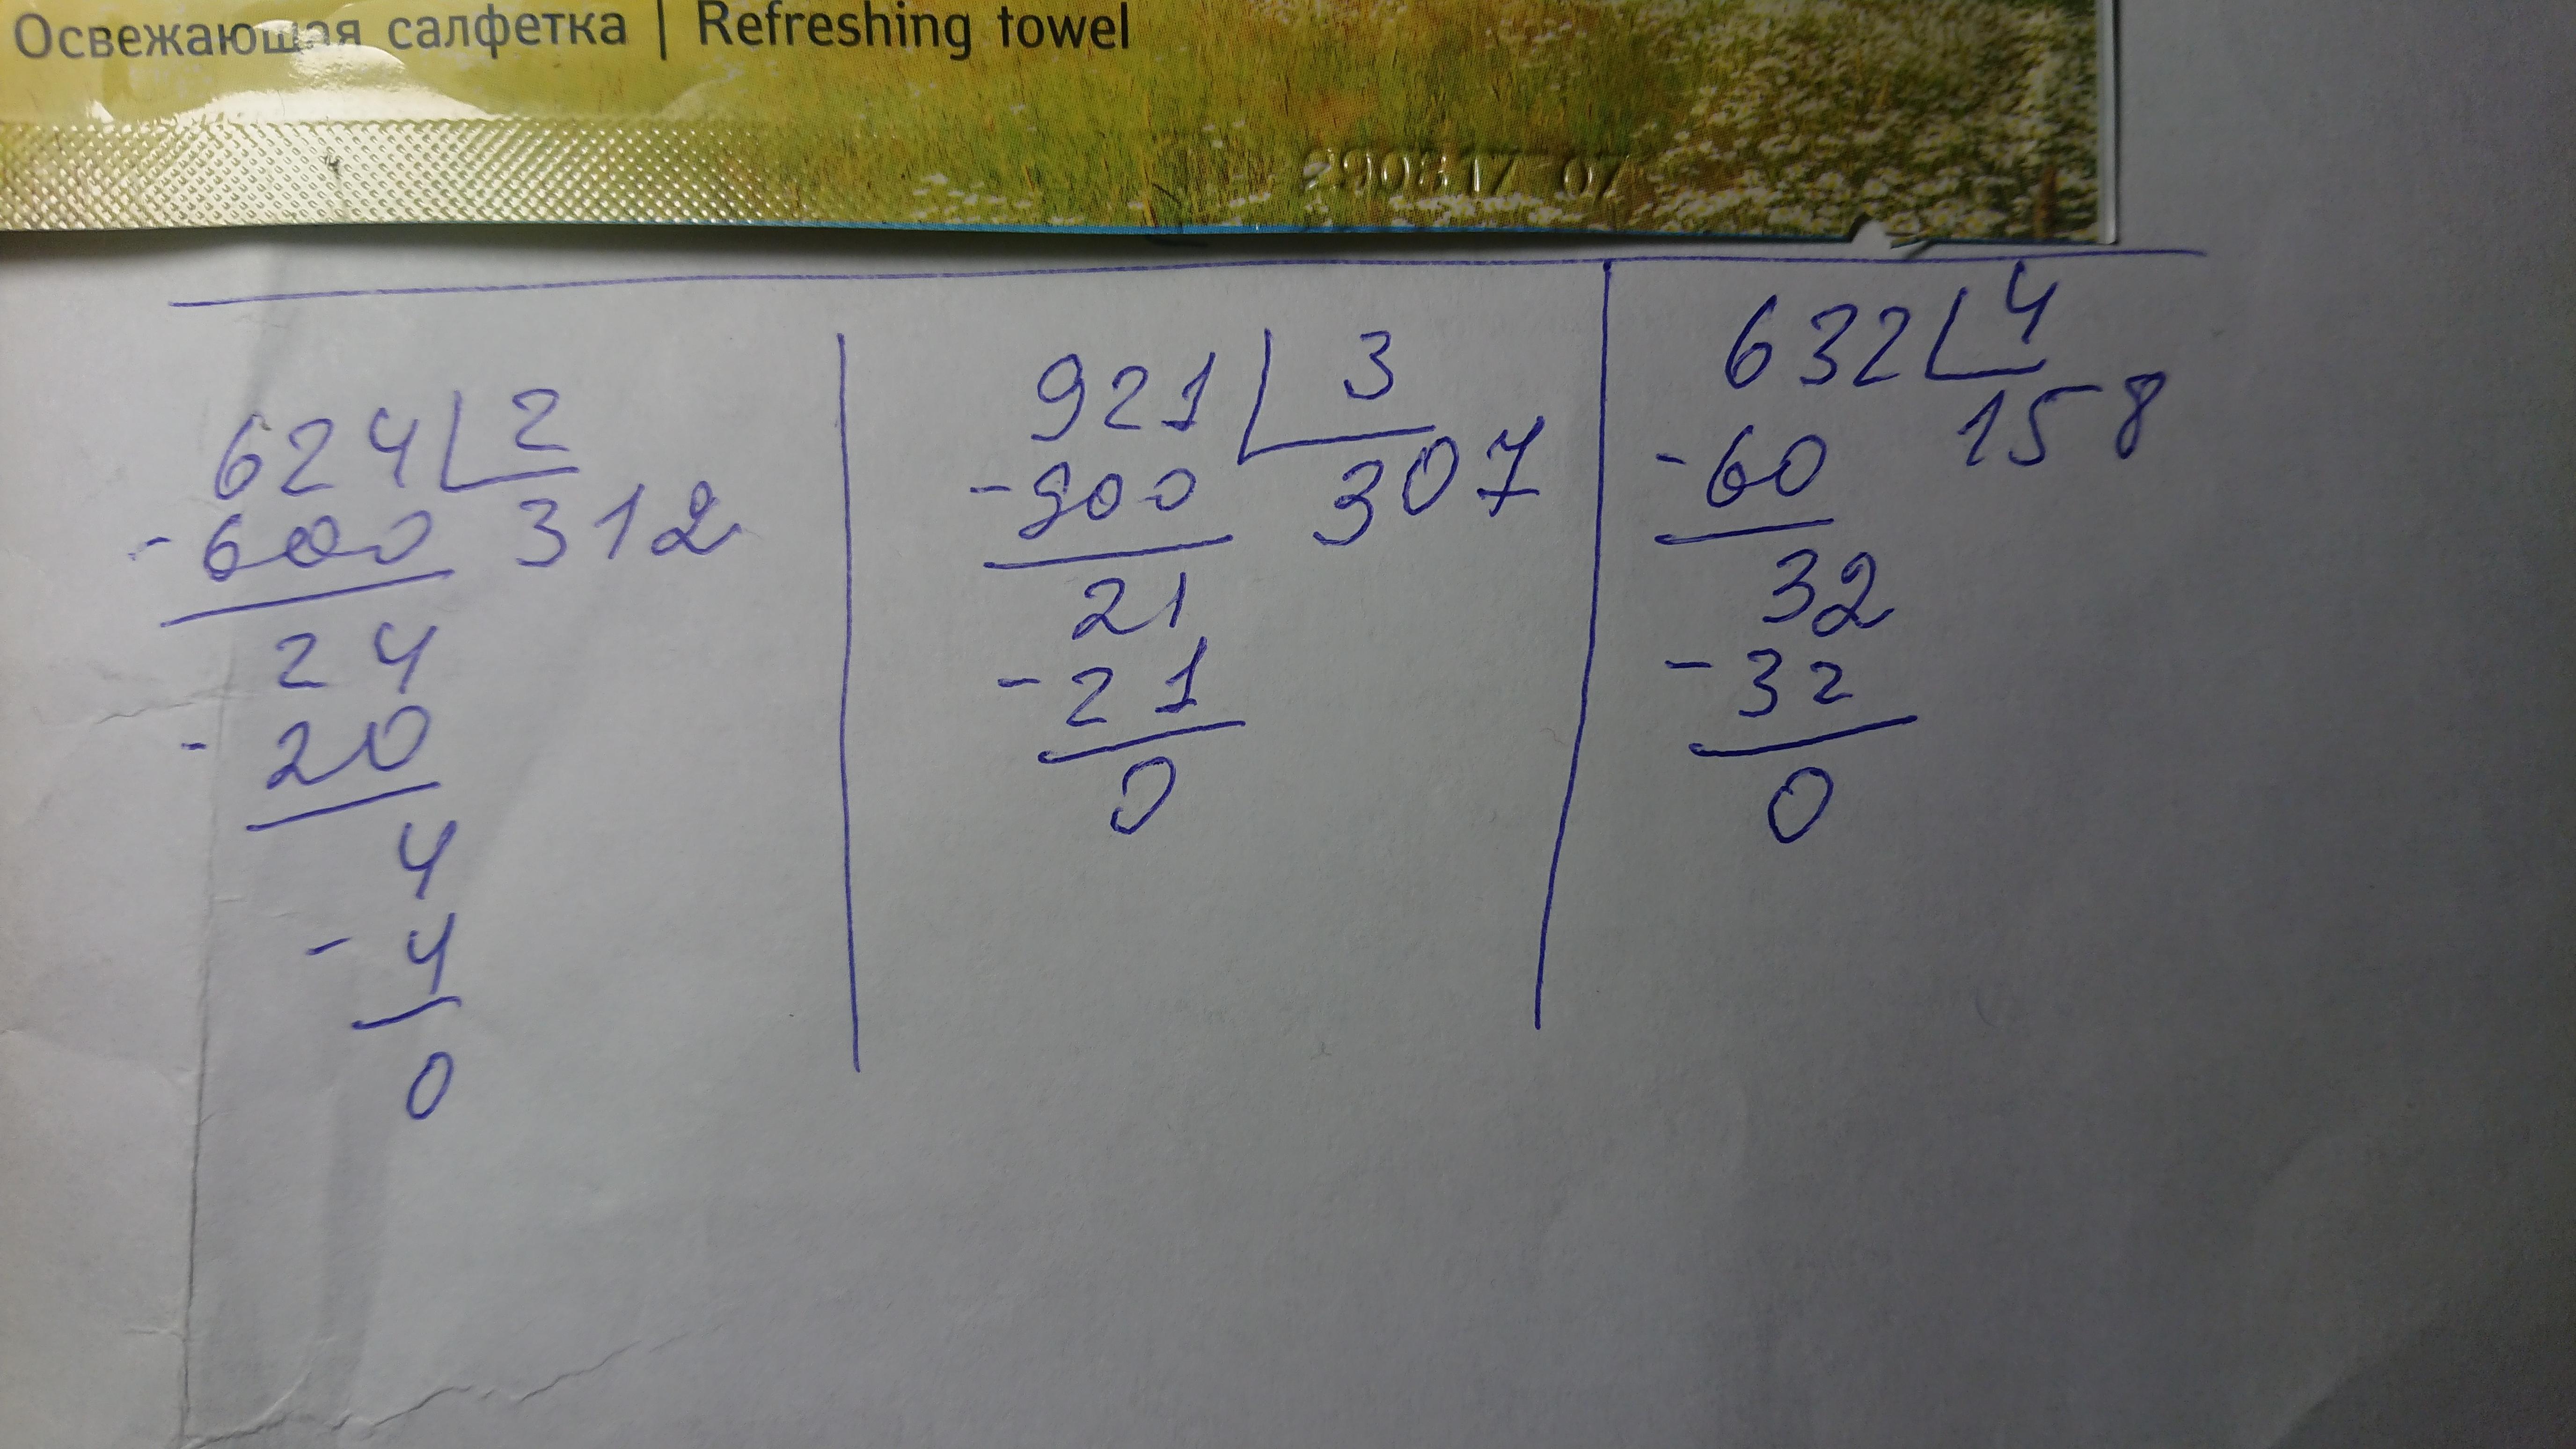 Освежающая салфетка | Refreshing towel
290817 07
624 2
- 600 312
24
- 20
4
- 4
0
921 3
- 900 307
21
- 21
0
632 4
- 60 158
32
- 32
0